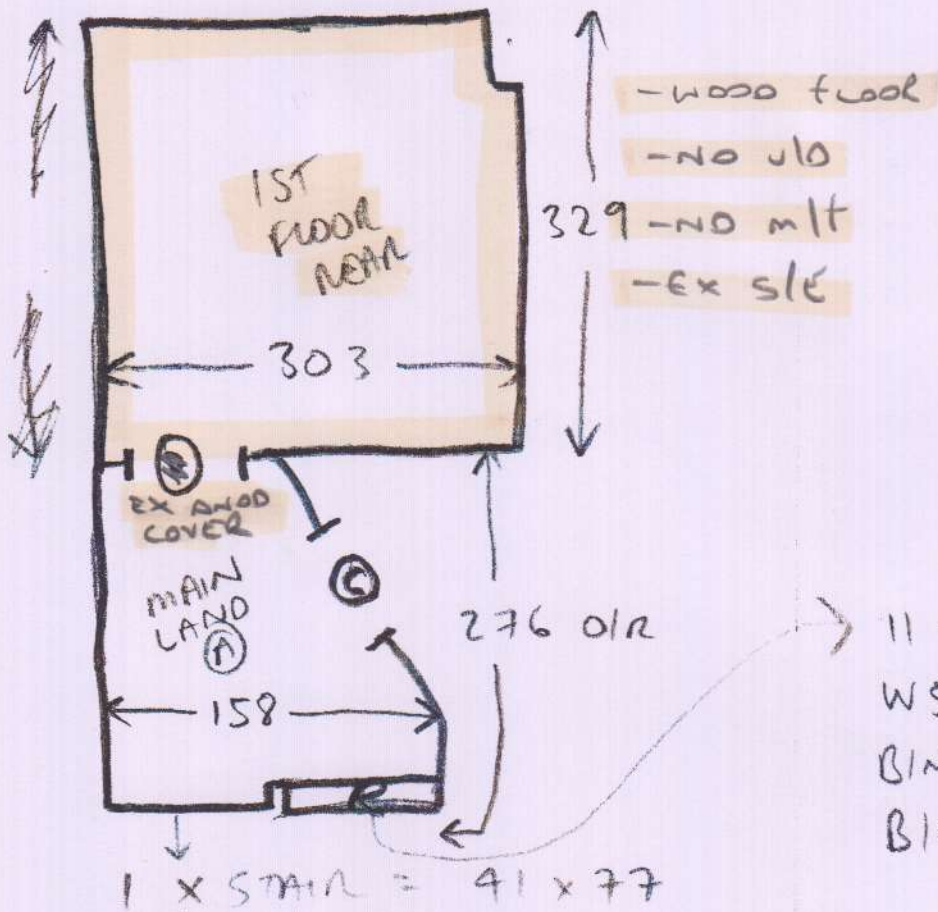 1ST
FLOOR
REAR
303
329
-WOOD FLOOR
-NO U/D
-NO M/T
-EX S/E
EX ANOD
COVER
MAIN
LAND
A
C
276 O/R
158
1 X STAIR = 41 X 77
11
WS
BIN
BI